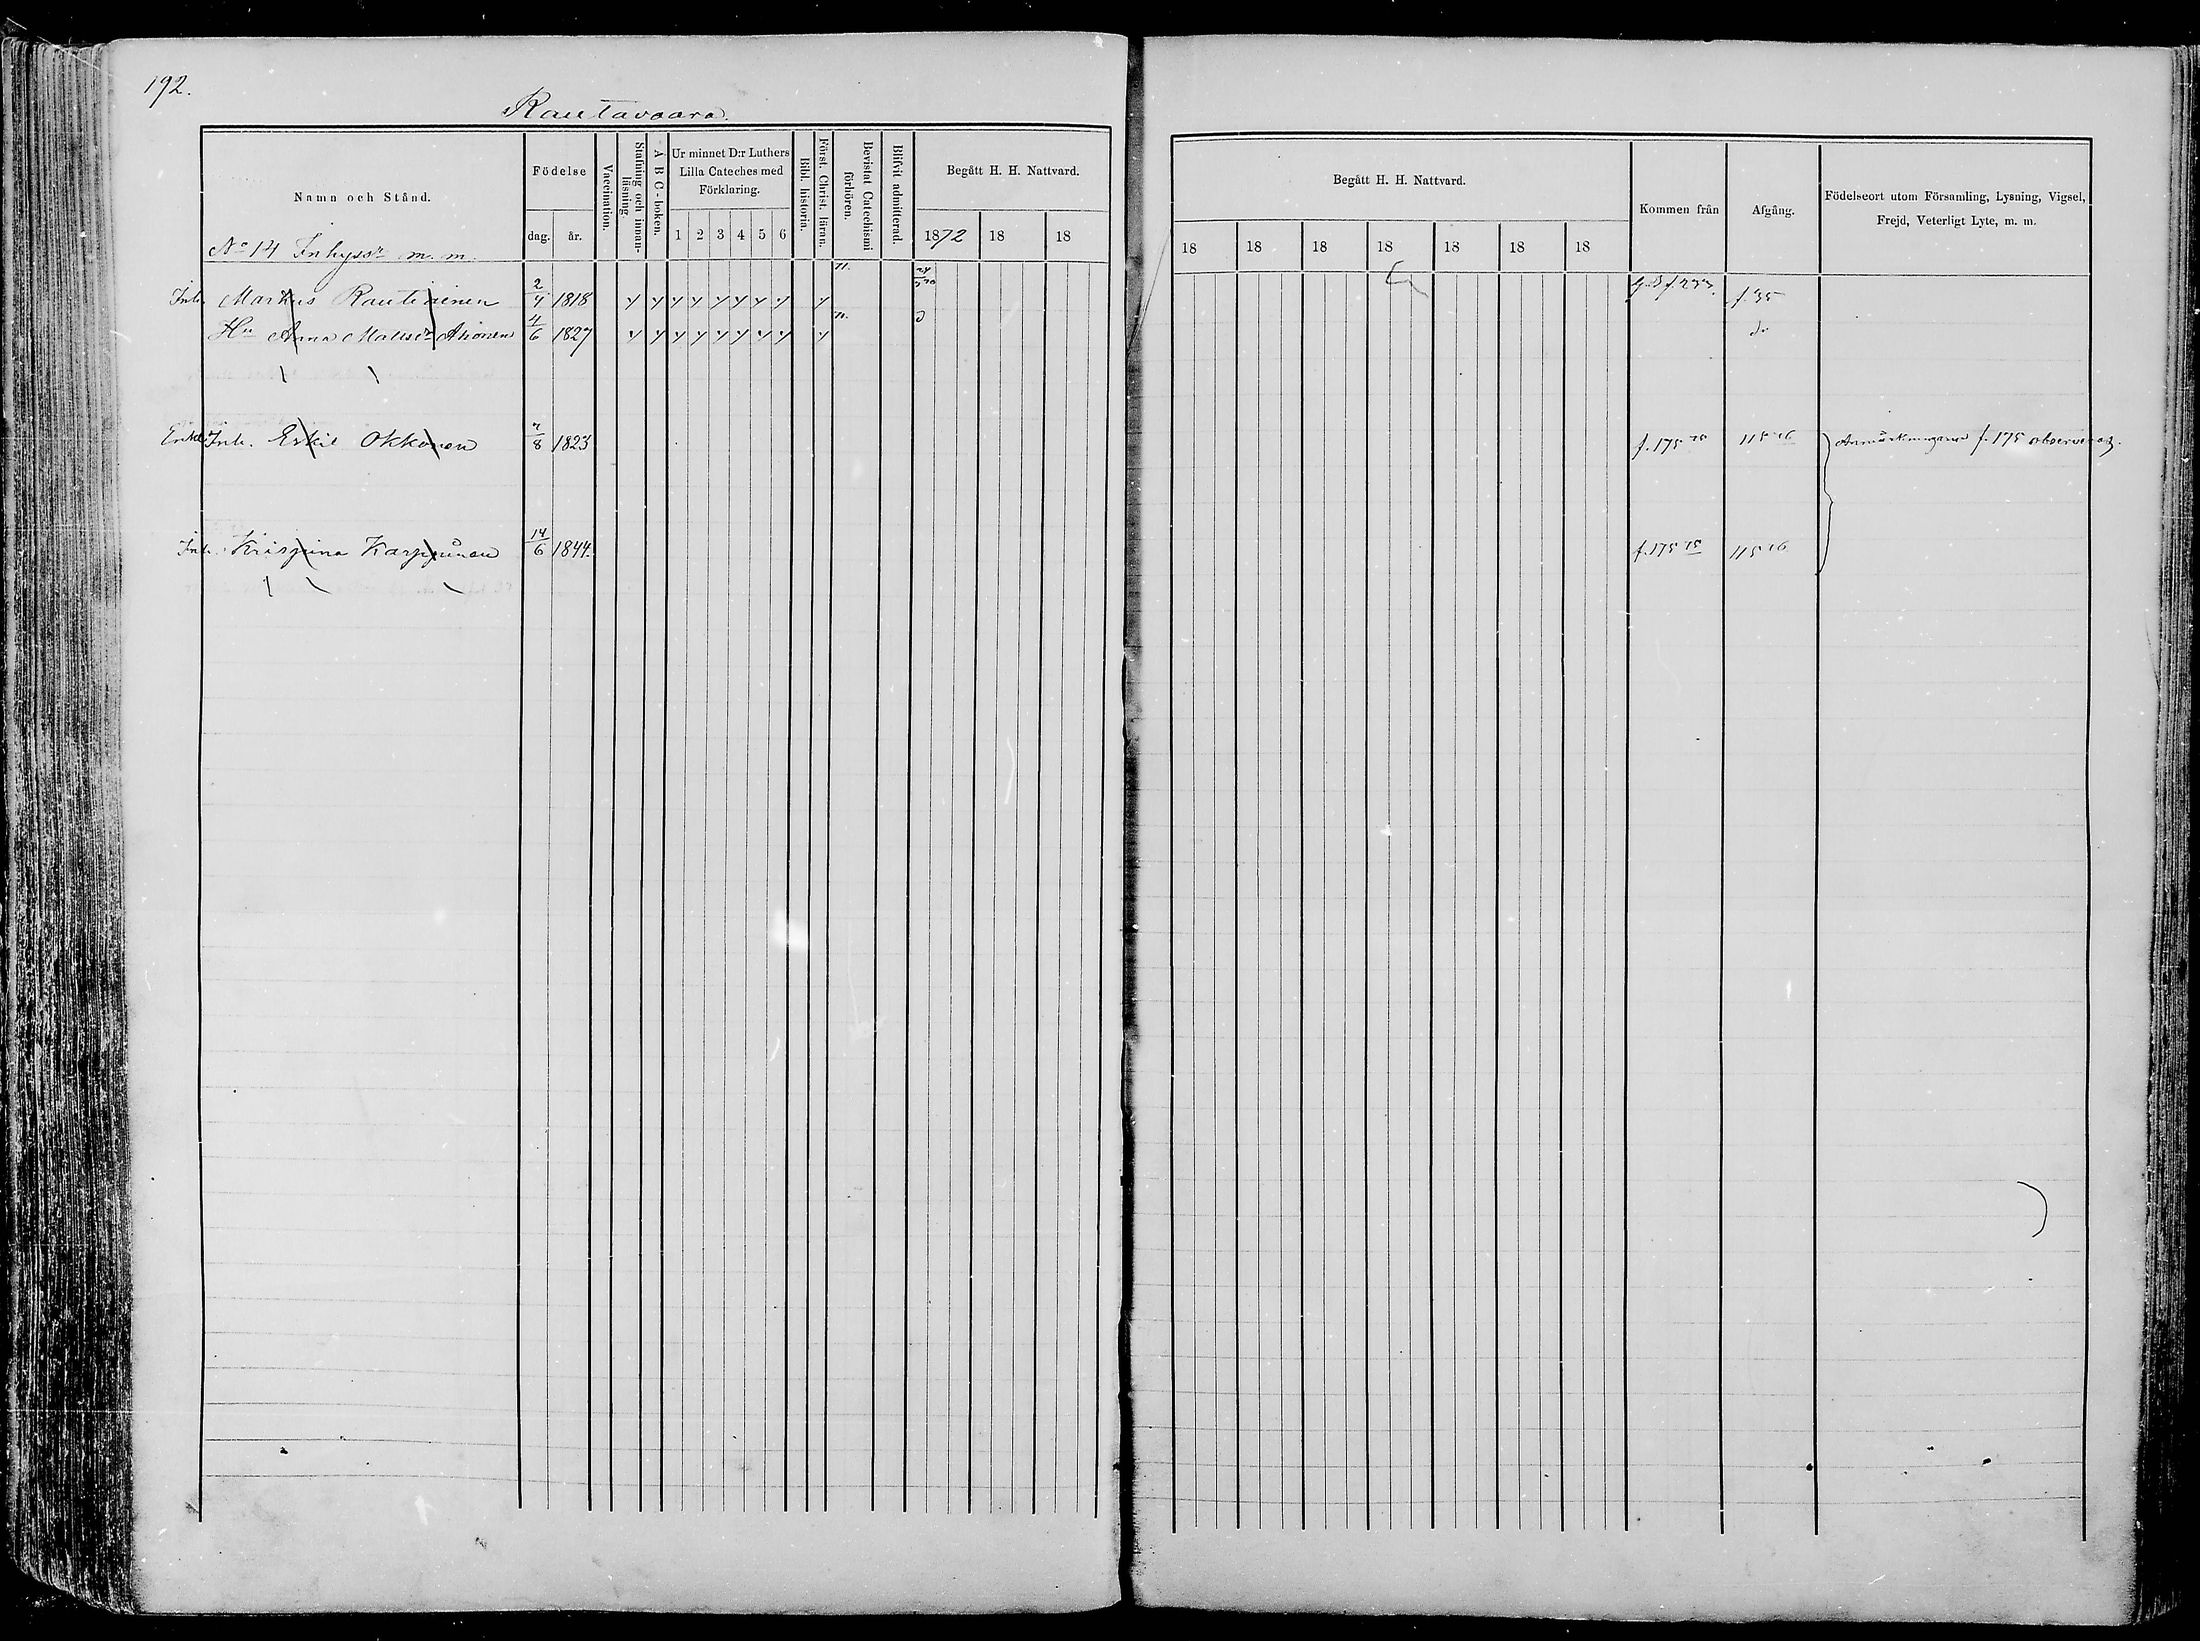 192.
Rautavaara.
Namn och Stånd.
Födelse
dag. år.
Vaccination.
Stafning och innan-läsning.
A B C-boken.
Ur minnet D:r Luthers
Lilla Cateches med
Förklaring.
1 2 3 4 5 6
Bibl. historia.
Först. Christ. läran.
Bevistat Catechismi förhören.
Blifvit admitterad.
Begått H. H. Nattvard.
1872 18 18
Begått H. H. Nattvard.
18 18 18 18 18 18 18
Kommen från
Afgång.
Födelseort utom Församling, Lysning, Vigsel,
Frejd, Veterligt Lyte, m. m.
No 14 Inhyses m. m.
Inh. Markus Rautiainen 2/4 1818 f. 35
Hu Anna Matsdr 4/6 1827 do
Enkl. Inh. Eskil Okkonen 7/8 1823 f. 175 75 115 76 Anmärkningarna f. 175 observeras.
Inh. Kristina Karppinen 14/6 1844. f. 175 75 115 76